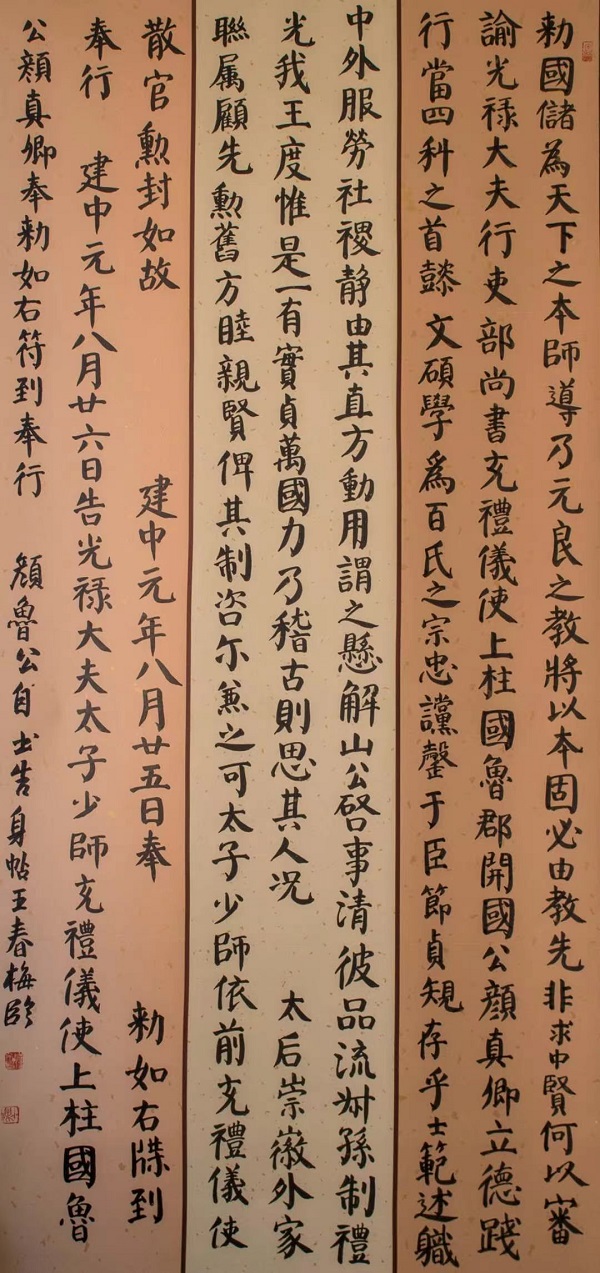 勑國儲為天下之本師導乃元良之教將以本固必由教先非求中賢何以審
諭光祿大夫行吏部尚書充禮儀使上柱國魯郡開國公顏真卿立德踐
行當四科之首懿文碩學爲百氏之宗忠讜罄于臣節貞規存乎士範述職
中外服勞社稷静由其直方動用謂之懸解山公啓事清彼品流叔孫制禮
光我王度惟是一有實貞萬國力乃稽古則思其人况 太后崇徽外家
聯属顧先勳舊方睦親賢俾其制咨尓兼之可太子少師依前充禮儀使
散官勲封如故 建中元年八月廿五日奉 勑如右牒到
奉行 建中元年八月廿六日告光祿大夫太子少師充禮儀使上柱國魯
公顏真卿奉勑如右符到奉行 顏魯公自书告身帖王春梅臨